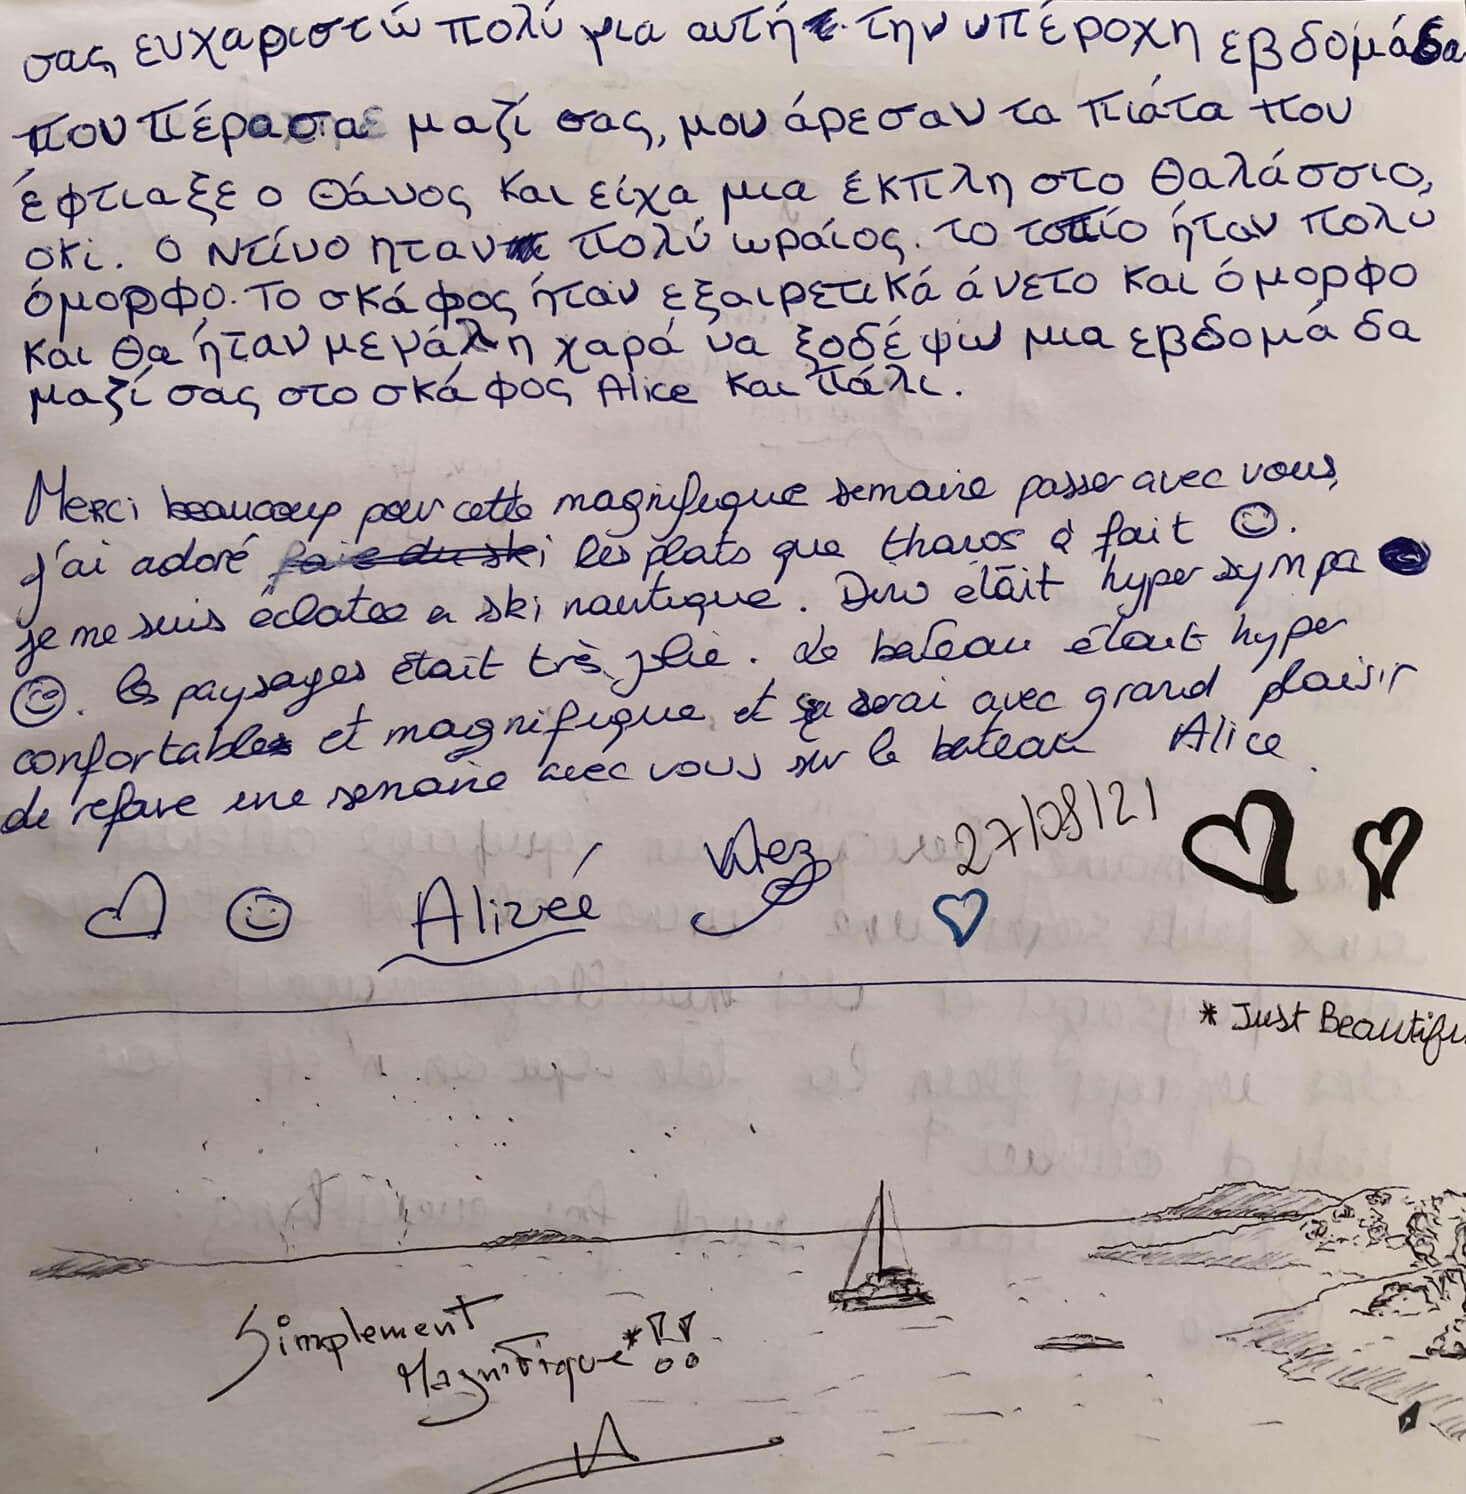 σας ευχαριστώ πολύ για αυτή την υπέροχη εβδομάδα
που πέρασα μαζί σας, μου άρεσαν τα πιάτα που
έφτιαξε ο Θάνος και είχα μια έκπλη στο θαλάσσιο,
σκί. ο Ντίνο ηταν πολύ ωραίος. το τοπίο ήταν πολύ
όμορφο. Το σκάφος ήταν εξαιρετικά άνετο και όμορφο
και θα ήταν μεγάλη χαρά να ξοδέψω μια εβδομάδα
μαζί σας στο σκάφος Alice και πάλι.
Merci beaucoup pour cette magnifique semaine passer avec vous,
j'ai adoré faie du ski les plats que thanos à fait ☺.
je me suis éclatée a ski nautique. Dino était hyper sympa
☺. les paysages était très jolie. Le bateau était hyper
confortables et magnifique et ça serai avec grand plaisir
de refaire une semaine avec vous sur le bateau Alice.
27/08/21
Alizéé
* Just Beautifu
Simplement
Magnifique* !!